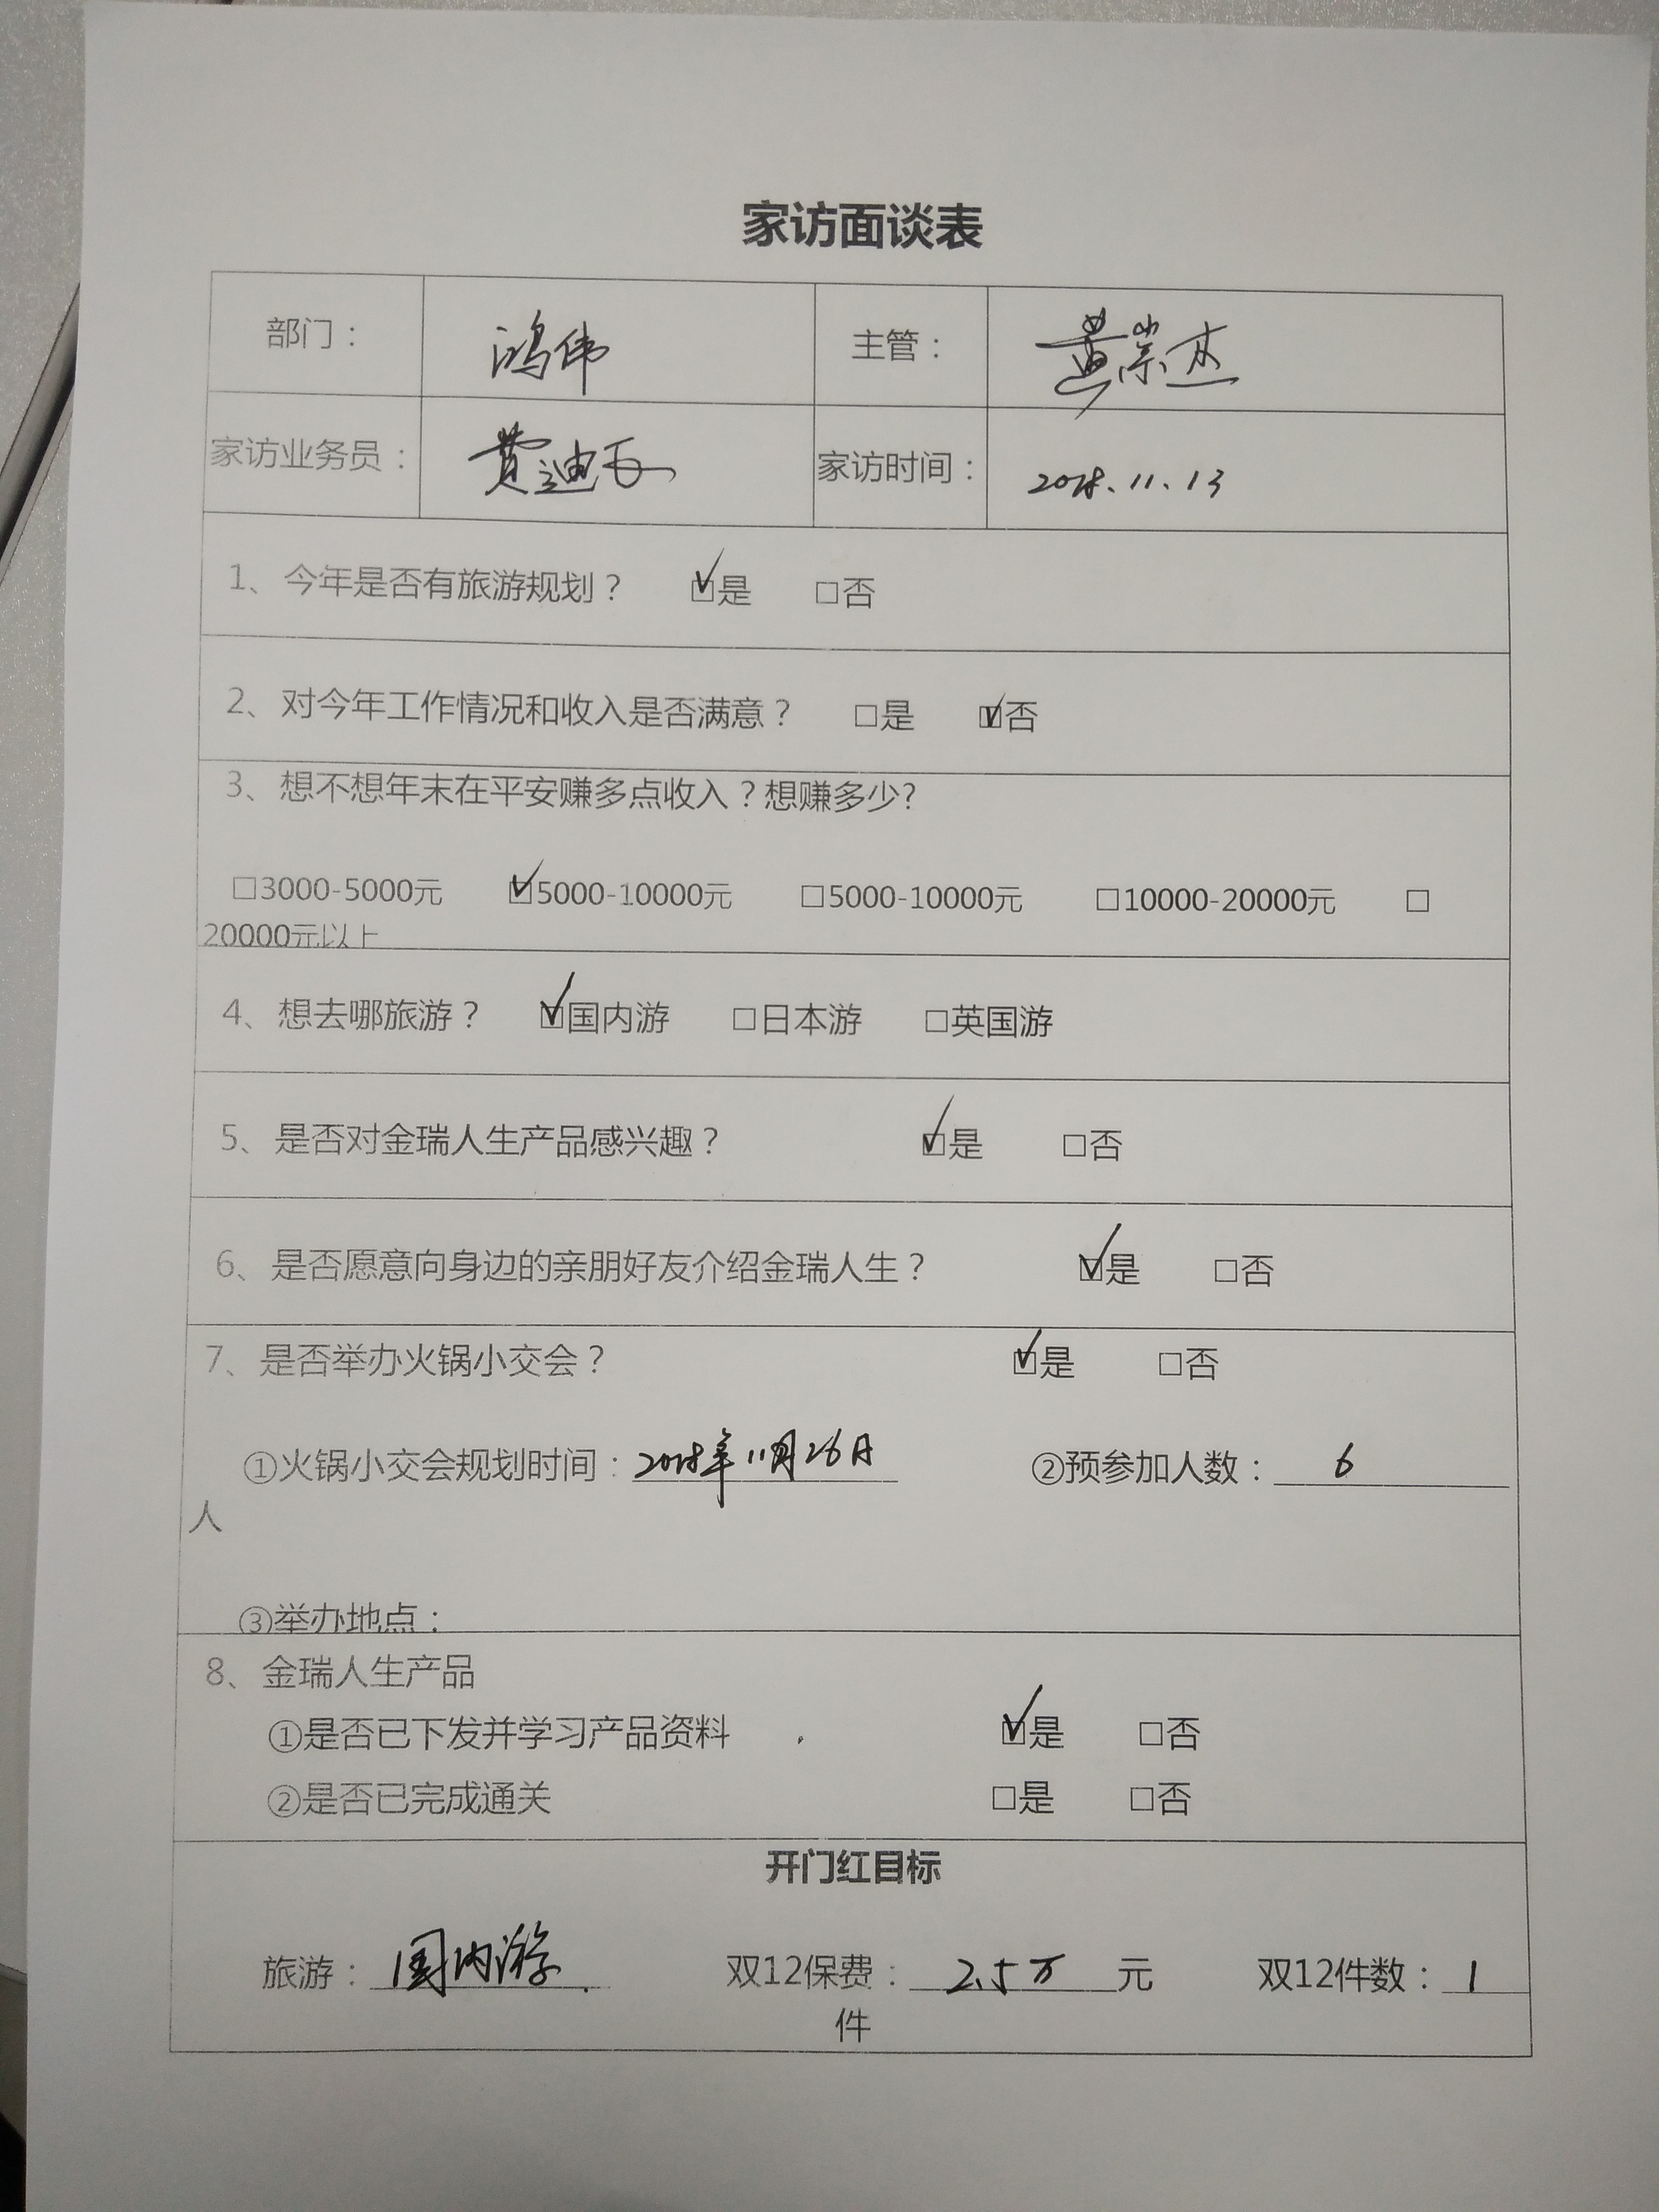 家访面谈表
部门： 鸿伟 主管： 黄崇杰
家访业务员： 费迪 家访时间： 2018.11.13
1、今年是否有旅游规划？ ☑是 □否
2、对今年工作情况和收入是否满意？ □是 ☑否
3、想不想年末在平安赚多点收入？想赚多少?
□3000-5000元 ☑5000-10000元 □5000-10000元 □10000-20000元 □
20000元以上
4、想去哪旅游？ ☑国内游 □日本游 □英国游
5、是否对金瑞人生产品感兴趣？ ☑是 □否
6、是否愿意向身边的亲朋好友介绍金瑞人生？ ☑是 □否
7、是否举办火锅小交会？ ☑是 □否
①火锅小交会规划时间：2018年11月26日 ②预参加人数：6
人
③举办地点：
8、金瑞人生产品
①是否已下发并学习产品资料 ☑是 □否
②是否已完成通关 □是 □否
开门红目标
旅游：国内游 双12保费：2.5万元 双12件数：1
件